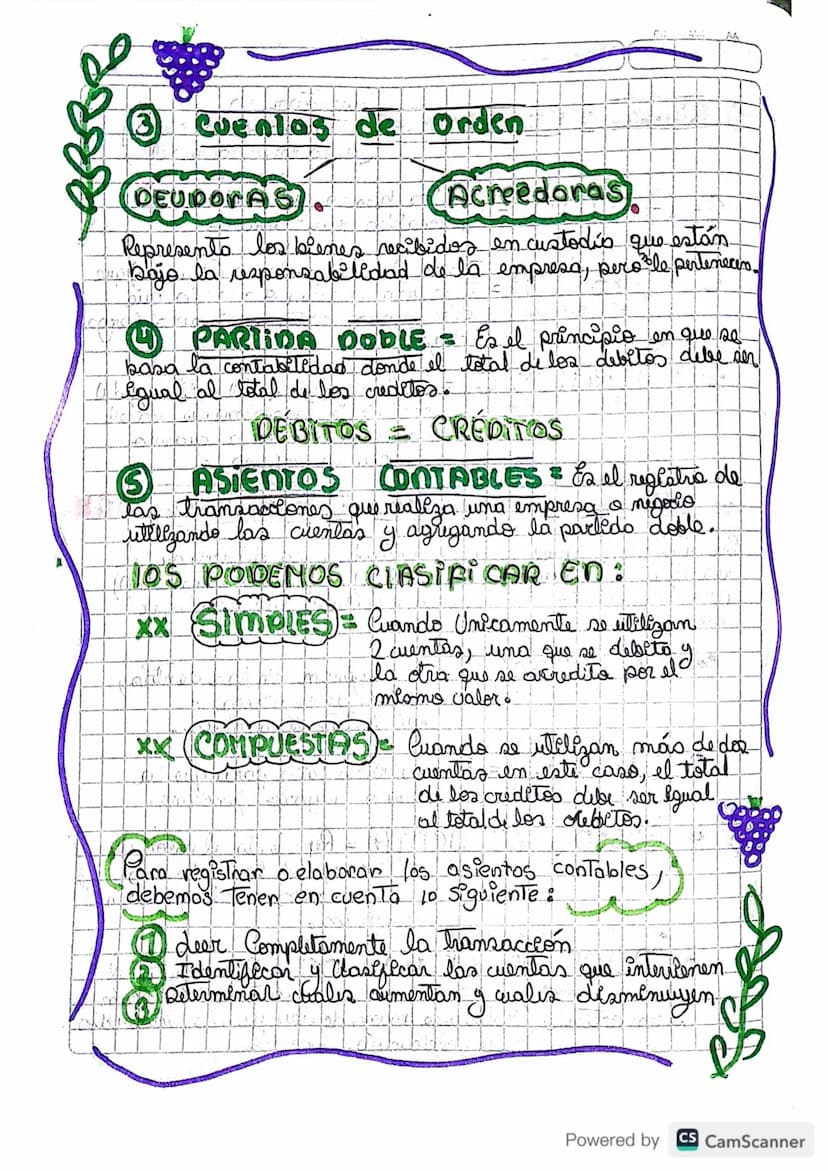 3 Cuentas de Orden
DEUDORAS. Acreedoras.
Representa los bienes recibidos en custodia que están
bajo la responsabilidad de la empresa, pero le pertenecen.
4 PARTIDA DOBLE = Es el principio en que se
basa la contabilidad donde el total de los debitos debe ser
igual al total de los creditos.
DÉBITOS = CRÉDITOS
5 ASIENTOS CONTABLES = Es el registro de
las transacciones que realiza una empresa o negocio
utilizando las cuentas y agrugando la partida doble.
LOS PODEMOS CLASIFICAR EN:
xx SIMPLES = Cuando Unicamente se utilizan
2 cuentas, una que se debita y
la otra que se acredita por el
mismo valor.
xx COMPUESTAS = Cuando se utilizan más de dos
cuentas en este caso, el total
de los creditos debe ser igual
al total de los debitos.
Para registrar o elaborar los asientos contables,
debemos Tener en cuenta lo siguiente:
1 Leer Completamente la Transacción
2 Identificar y Clasificar las cuentas que intervienen
3 Determinar cuales aumentan y cuales disminuyen
Powered by CS CamScanner